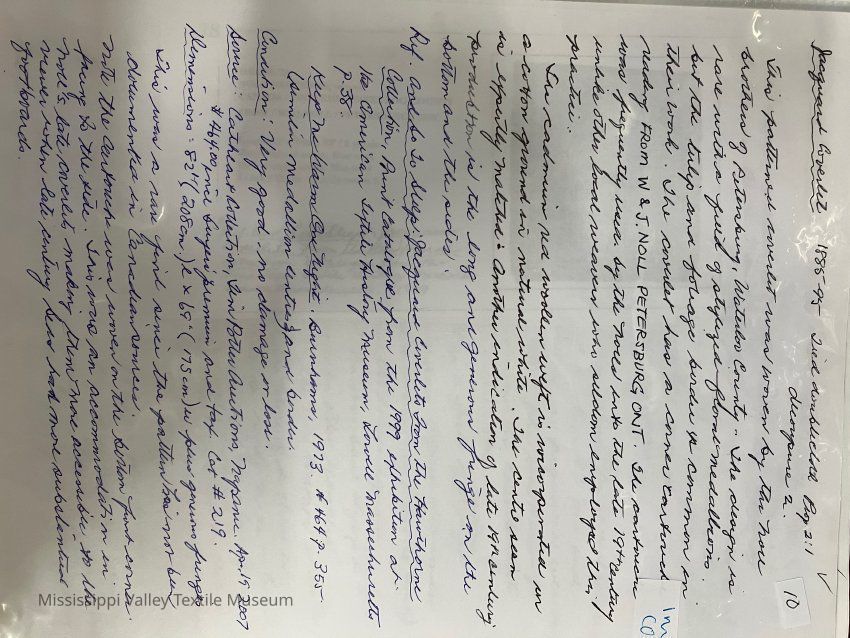 Jacquard Coverlet 1885-95 Tied doublecloth Pg 2.1 ✓
10
This patterned coverlet was woven by the Noll
brothers of Petersburg, Waterloo County. The design is
rare with a field of stylized floral medallions
but the tulip and foliage border is common in
their work. The coverlet has a corner cartouche
reading FROM W & J. NOLL PETERSBURG, ONT. The cartouche
was frequently used by the Nolls into the late 19th century
unlike other local weavers who seldom employed this
practice.
The cadmium red woollen weft is incorporated in
a cotton ground in natural white. The centre seam
is expertly matched. Another indication of late 19th century
production is the long and generous fringe on the
bottom and the sides.
Ref. And So To Sleep: Jacquard Coverlets from the Hawthorne
Collection, Print Catalogue from the 1999 exhibition at
the American Textile History Museum, Lowell Massachusetts
P. 38.
Keep Me Warm One Night. Burnhams, 1973. #464 p. 355.
(similar medallion centre) and border.
Condition: Very good. no damage or loss.
Source: Collection, Tim Potter Auctions, Napanee. Apr. 19, 2007
$464.00 incl buyers premium and tax Cat # 219.
Dimensions: 82" (208 cm) L x 69" (175 cm) W plus generous fringe
This was a rare find since the pattern has not been
documented in Canadian sources.
Note the cartouche was woven on the bottom front corner
facing to the side. This was an accommodation in
Noll's late coverlets, making them more accessible to the
viewer when late century beds had more substantial
footboards.
Mississippi Valley Textile Museum